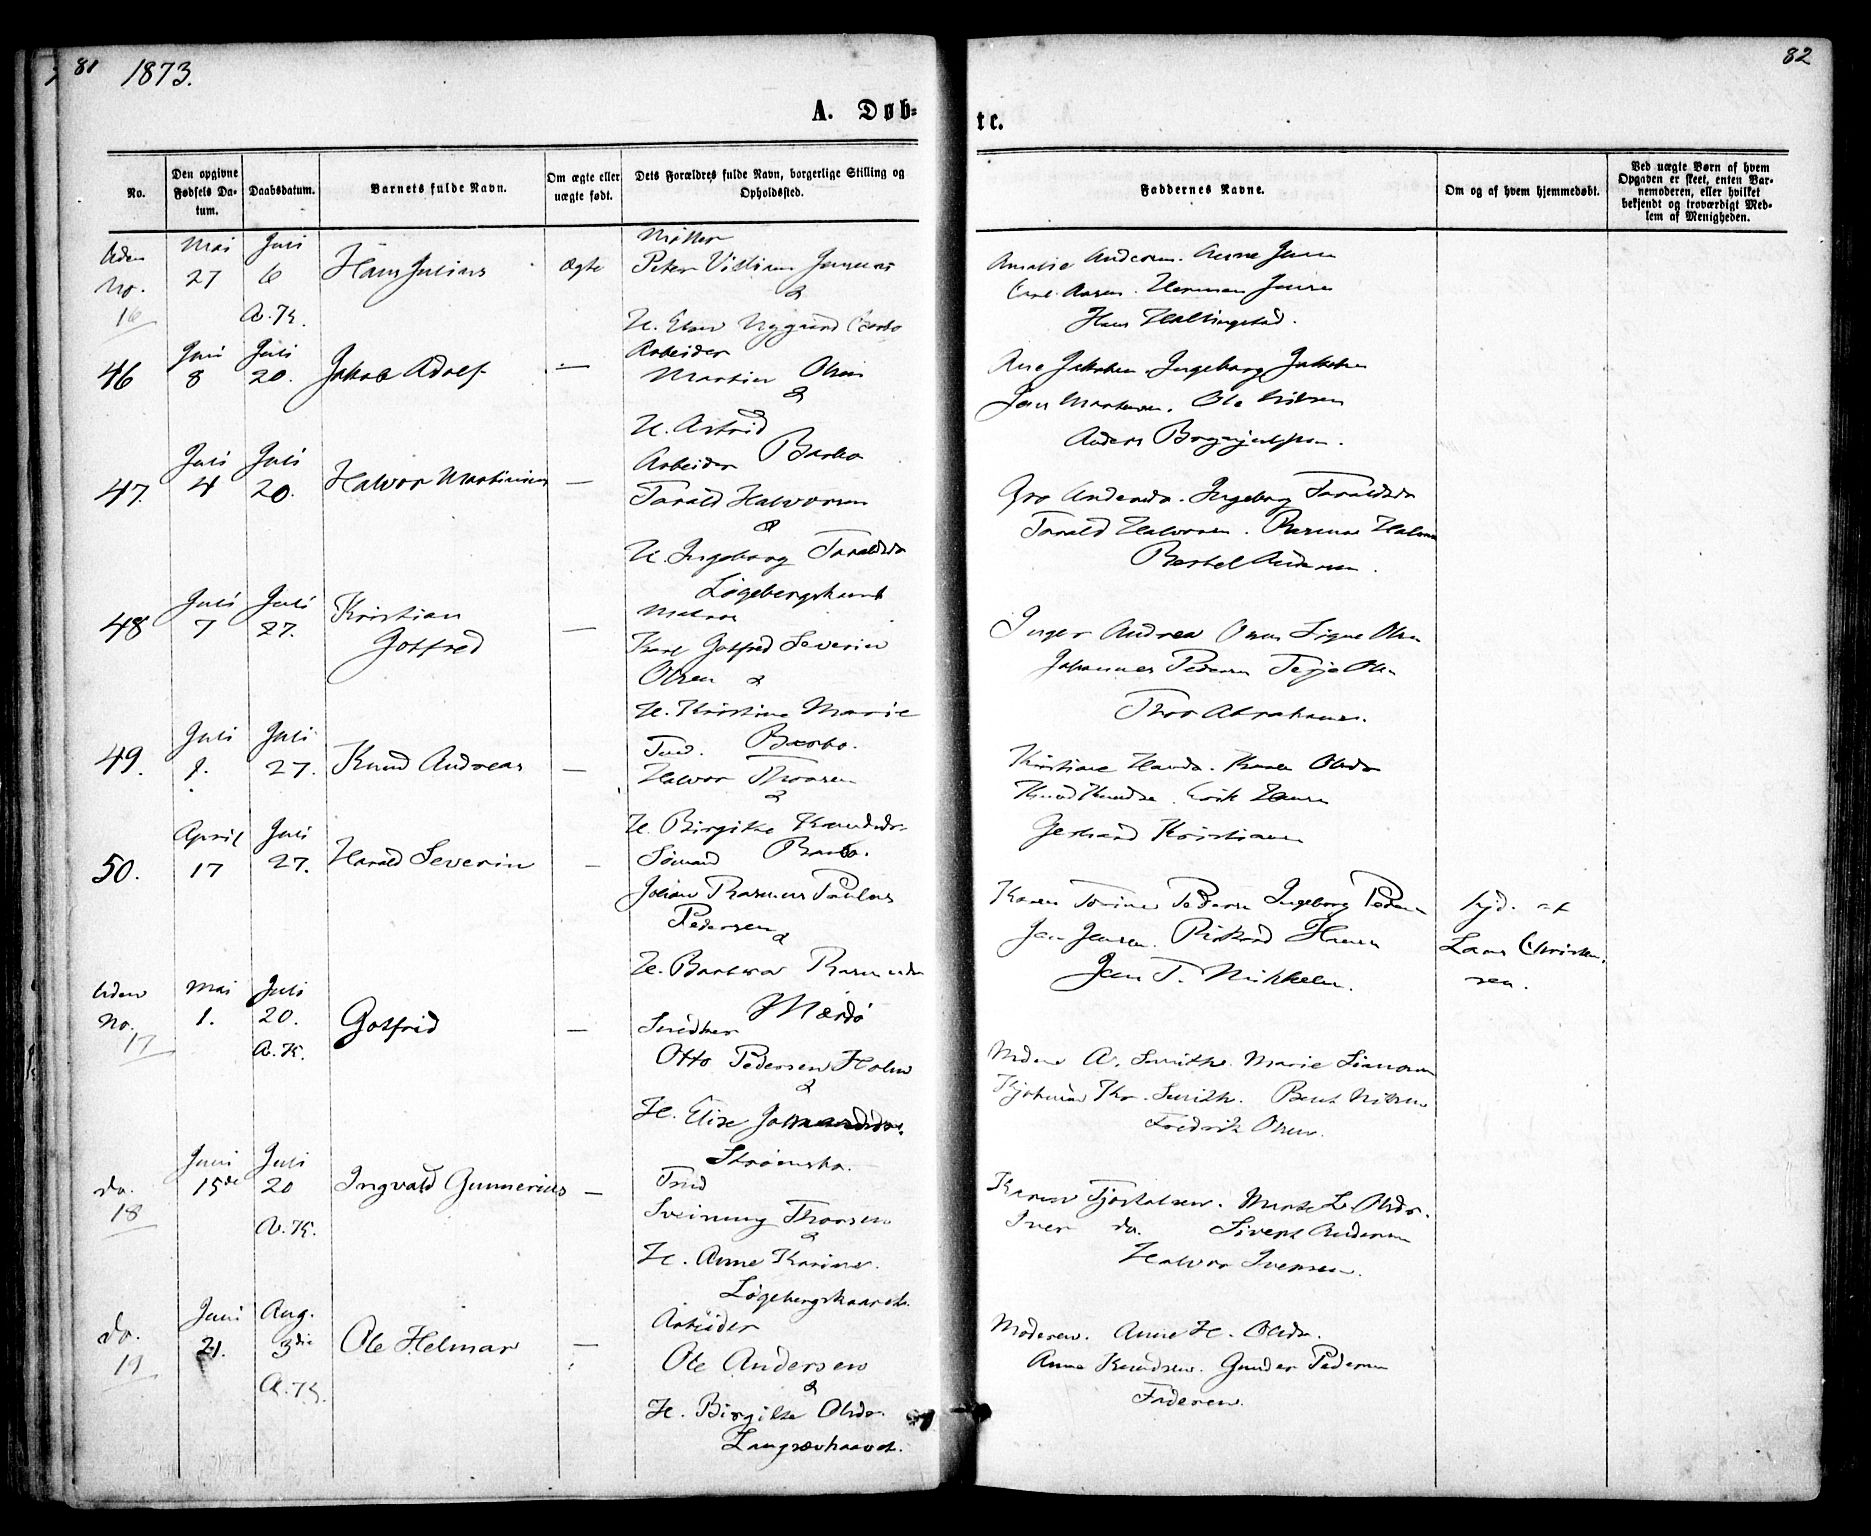 81 1873.
82
A. Døb-
te.
No.
Den opgivne Fødsels Datum.
Daabsdatum.
Barnets fulde Navn.
Om ægte eller uægte født.
Dets Forældres fulde Navn, borgerlige Stilling og Opholdssted.
Faddernes Navne.
Om og af hvem hjemmedøbt.
Ved uægte Børn af hvem Opgaven er skeet, enten Barnemoderen, eller hvilket bekjendt og troværdigt Medlem af Menigheden.
Uden No. 16
Mai 27
Juli 6 A.K.
Hans Julius
Ægte
Peter William Jensen
&
H.
Amalie Andersen. Anne Jensen
Herman Jensen
Hans Hallingstad.
46
Juni 8
Juli 20.
Jakob Adolf
—
Arbeider
Martin Olsen
&
H. Astrid
Barbo
Jakobsen. Ingeborg Jakobsen
Jens Martinsen. Ole Nilsen
Anders
47.
Juli 4
Juli 20.
Halvor Martinius
—
Arbeider
Tarald Halvorsen
&
H. Ingeborg Taraldsdr
Løgebergskaret
Gro Andersdr. Ingeborg Taraldsdr
Tarald Halvorsen. Rasmus
Bertel Andersen.
48
Juli 7
Juli 27.
Kristian Gotfred
—
Matros
Karl Gotfred Severin
Olsen &
H. Kristine Marie
Barbo.
Inger Andrea Signe Olsen
Johannes Pedersen Terje Olsen
Thor Abrahamsen.
49.
Juli 1.
Juli 27.
Knud Andreas
—
Tmd.
Halvor Thorsen
&
H. Birgitte Knudsdr.
Barbo.
Kristiane Karen Olsdr
Knud Knudsen. Erik Hansen
Gerhard Kristiansen
50.
April 17
Juli 27.
Harald Severin
—
Sømand
Johan Rasmus Paulus
Pedersen &
H. Barbra Rasmusdr
Mærdø
Karen Torine Pedersen Ingeborg Pedersen
Jens Jensen. Rikard Hansen
Jens T. Mikkelsen.
hjd. af
Lars Christensen.
Uden No. 17
Mai 1.
Juli 20. A.K.
Gotfrid
—
Snedker
Otto Pedersen Holm
&
H. Elise
Strømsbo.
A. Smith. Marie Simonsen
Smith. Bent Nilsen
Fredrik Olsen.
do. 18
Juni 15de
Juli 20 A.K.
Ingvald Gunnerius
—
Tmd
Sveinung Thorsen
&
H. Anne Karine.
Løgebergskaaret.
Karen Tjøstolsen. Marte L. Olsdr.
Iver do. Sivert Andersen
Halvor Iversen.
do. 19
Juni 21.
Aug. 3die A.K.
Ole Helmar
—
Arbeider
Ole Andersen
&
H. Birgitte Olsdr.
Langsævhaavet.
Moderen. Anne H. Olsdr.
Anne Knudsen. Gunder Pedersen
Faderen.